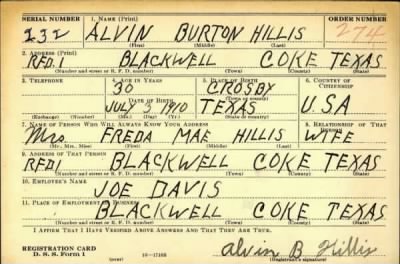 SERIAL NUMBER 1. NAME (Print) ORDER NUMBER
232 ALVIN BURTON HILLIS 274
(First) (Middle) (Last)
2. ADDRESS (Print)
RFD.1 BLACKWELL COKE TEXAS
(Number and street or R. F. D. number) (Town) (County) (State)
3. TELEPHONE 4. AGE IN YEARS 5. PLACE OF BIRTH 6. COUNTRY OF CITIZENSHIP
30 CROSBY
DATE OF BIRTH (Town or county)
JULY 3 1910 TEXAS USA
(Exchange) (Number) (Mo.) (Day) (Yr.) (State or country)
7. NAME OF PERSON WHO WILL ALWAYS KNOW YOUR ADDRESS 8. RELATIONSHIP OF THAT PERSON
Mrs. FREDA MAE HILLIS WIFE
(Mr., Mrs., Miss) (First) (Middle) (Last)
9. ADDRESS OF THAT PERSON
RFD1 BLACKWELL COKE TEXAS
(Number and street or R. F. D. number) (Town) (County) (State)
10. EMPLOYER'S NAME
JOE DAVIS
11. PLACE OF EMPLOYMENT OR BUSINESS
BLACKWELL COKE TEXAS
(Number and street or R. F. D. number) (Town) (County) (State)
I AFFIRM THAT I HAVE VERIFIED ABOVE ANSWERS AND THAT THEY ARE TRUE.
REGISTRATION CARD
D. S. S. Form 1 (over) Alvin B Hillis